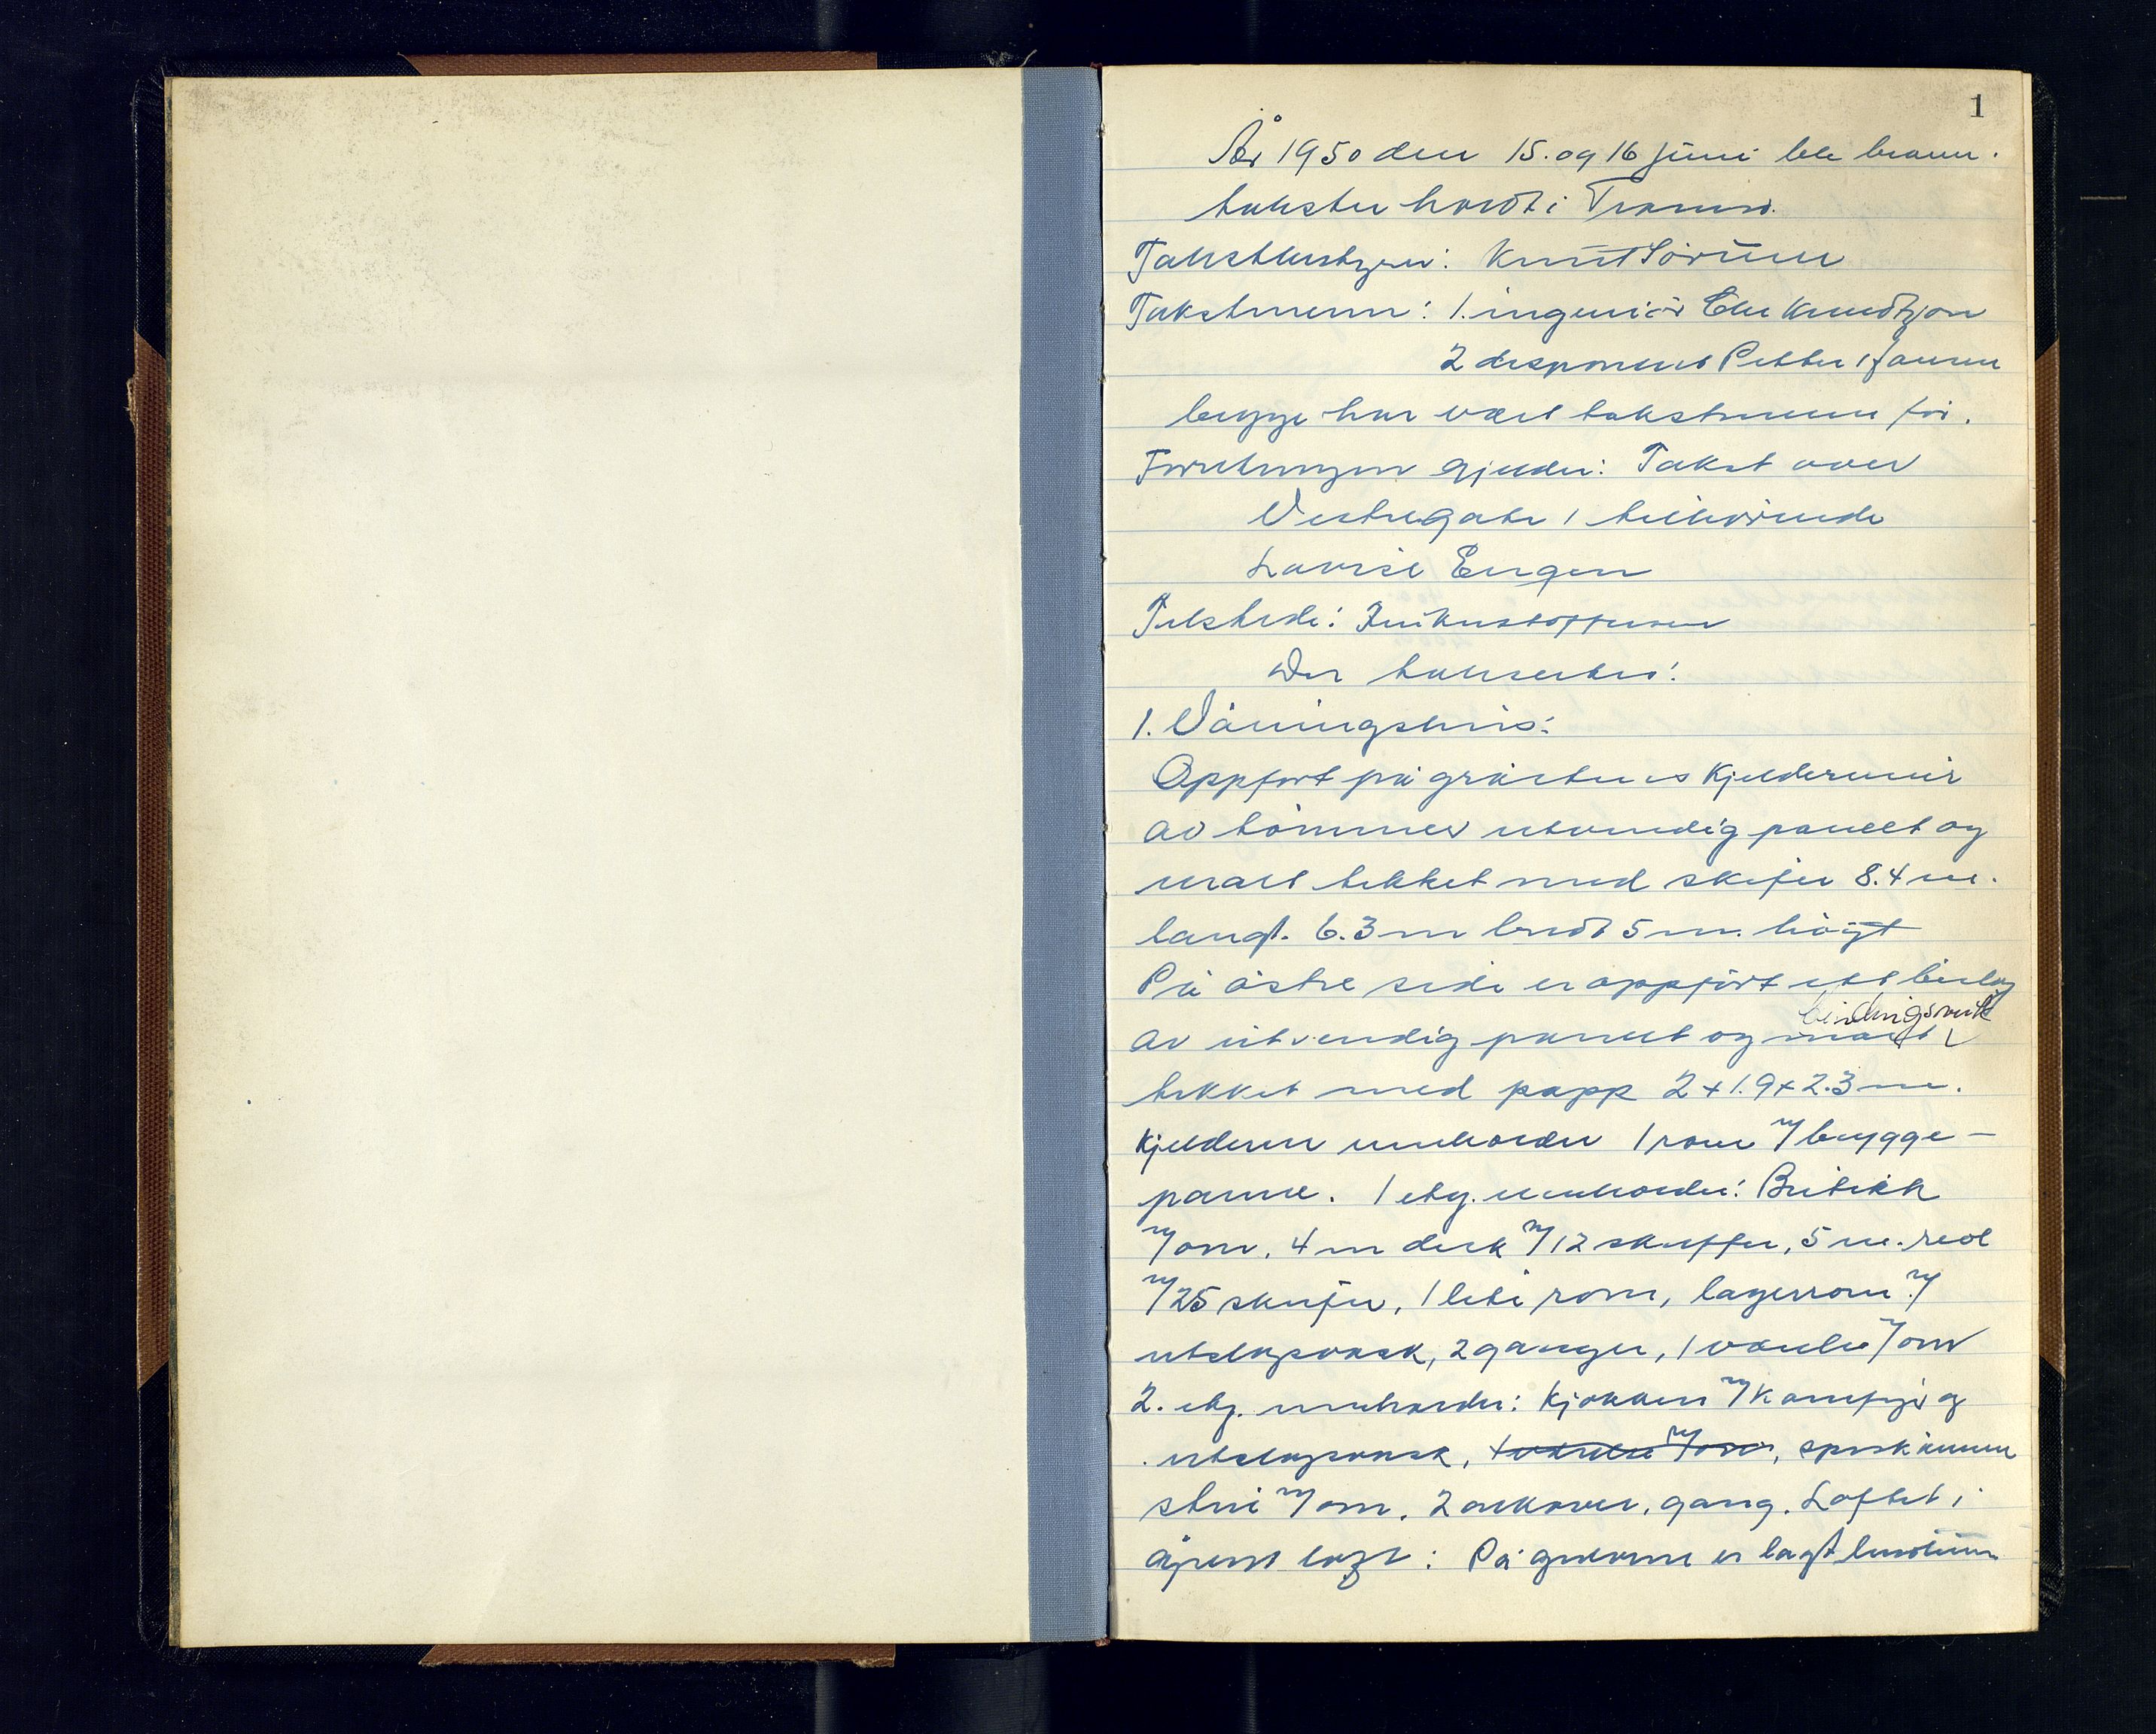 1
År 1950 den 15. og 16 juni ble brann-
takster holdt i Tromsø.
Takstbestyrer: Knut Sörum
Takstmenn: 1. ingeniör Knudtzon
2 disponent Petter Hansen
begge har vært takstmenn för.
Forretningen gjelder: Takst over
Vestregate 1 tilhörende
Lovise Engen
Tilstede:
Der takseres:
1. Våningshus:
Oppfort på gråstens kjeldermur
av tömmer utvendig panelt og
malt tekket med skifer 8.4 m.
langt. 6.3 m bredt 5 m. högt
På östre side er oppfört ett bislag
bindingsverk
av utvendig panelt og malt
tekket med papp 2 + 1.9 + 2.3 m.
Kjelderen inneholder 1 rom m/ brygge-
panne. 1 etg. inneholder: Butikk
m/ ovn, 4 m disk m/ 12 skuffer, 5 m. reol
m/ 25 skuffer, 1 lite rom, lagerrom m/
utslagsvask, 2 ganger, 1 værelse m/ ovn
2. etg. inneholder: Kjøkken m/ komfyr og
utslagsvask, 1 værelse m/ ovn, spiskammer
stue m/ ovn. 2 alkover, gang. Loftet i
åpent lage: På gulvene er lagt linoleum